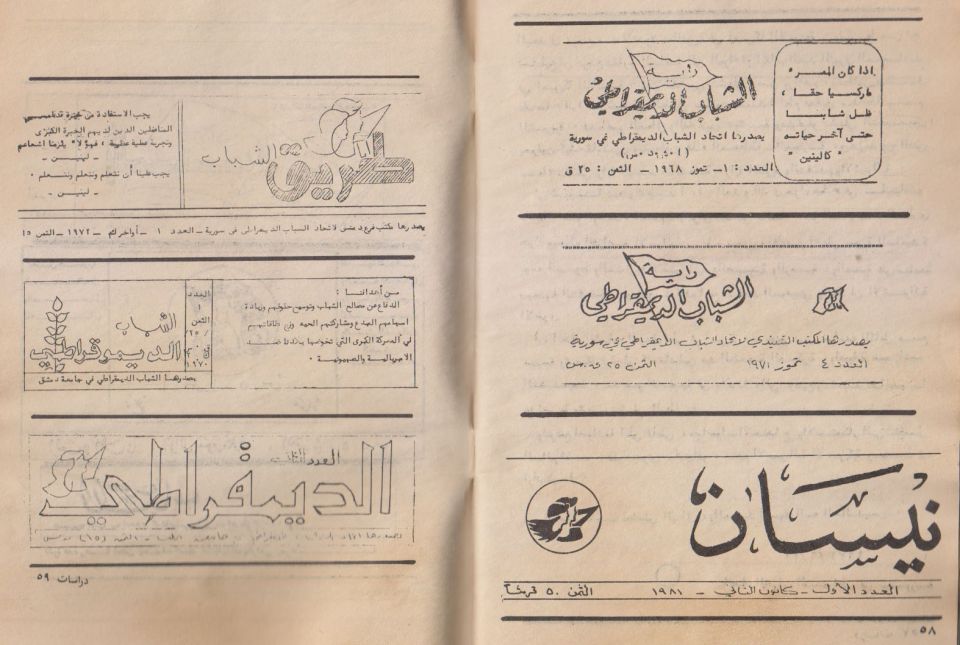 راية
الشباب الديمقراطي
يصدرها اتحاد الشباب الديمقراطي في سورية
العدد : ١ـ تموز ١٩٦٨ ـ الثمن : ٢٥ ق
اذا كان المر
ماركسيا حقا ،
ظل شابا
حتى آخر حياته
" كالينين "
راية
الشباب الديمقراطي
يصدرها المكتب التنفيذي لاتحاد الشباب الديمقراطي في سورية
العدد ٤ تموز ١٩٧١ الثمن ٢٥ ق.س
نيسان
العدد الأول ـ كانون الثاني ـ ١٩٨١ الثمن ٥٠ قرشاً
٥٨
يجب الاستفادة من خبرة قدامى
المناضلين الذين لديهم الخبرة الكبرى
وتجربة عملية
ـ لينين ـ
يجب علينا أن نتعلم ونتعلم ونتعلم ٠
ـ لينين ـ
طريق الشباب
يصدرها مكتب فرع دمشق لاتحاد الشباب الديمقراطي في سورية ـ العدد ١ ـ أواخر ١٩٧٢ ـ الثمن ١٥
العدد
١
الثمن
٢٥
١٩٧٠
الشباب
الديموقراطي
يصدرها الشباب الديمقراطي في جامعة دمشق
من أهدافنا :
الدفاع عن مصالح الشباب وتوسيع حقوقهم وزيادة
في المعركة الكبرى التي تخوضها بلادنا ضد
الامبريالية والصهيونية ٠
العدد الثالث
الديمقراطي
دراسات ٥٩